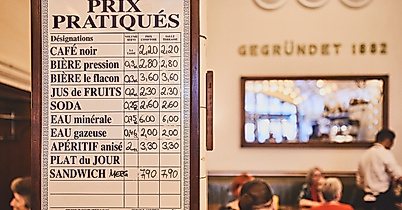 PRIX
PRATIQUÉS
Désignations
CAFÉ noir 2,20 2,20
BIÈRE pression 0,3 2,80 2.80
BIÈRE le flacon 0,3 3,60 3,60
JUS de FRUITS 0,2 2,30 2.30
SODA 0,25 2,60 2.60
EAU minérale 6,00 6,00
EAU gazeuse 2,00 2,00
APÉRITIF anisé 2 3,30 3,30
PLAT du JOUR
SANDWICH 7,90 7,90
GEGRÜNDET 1882